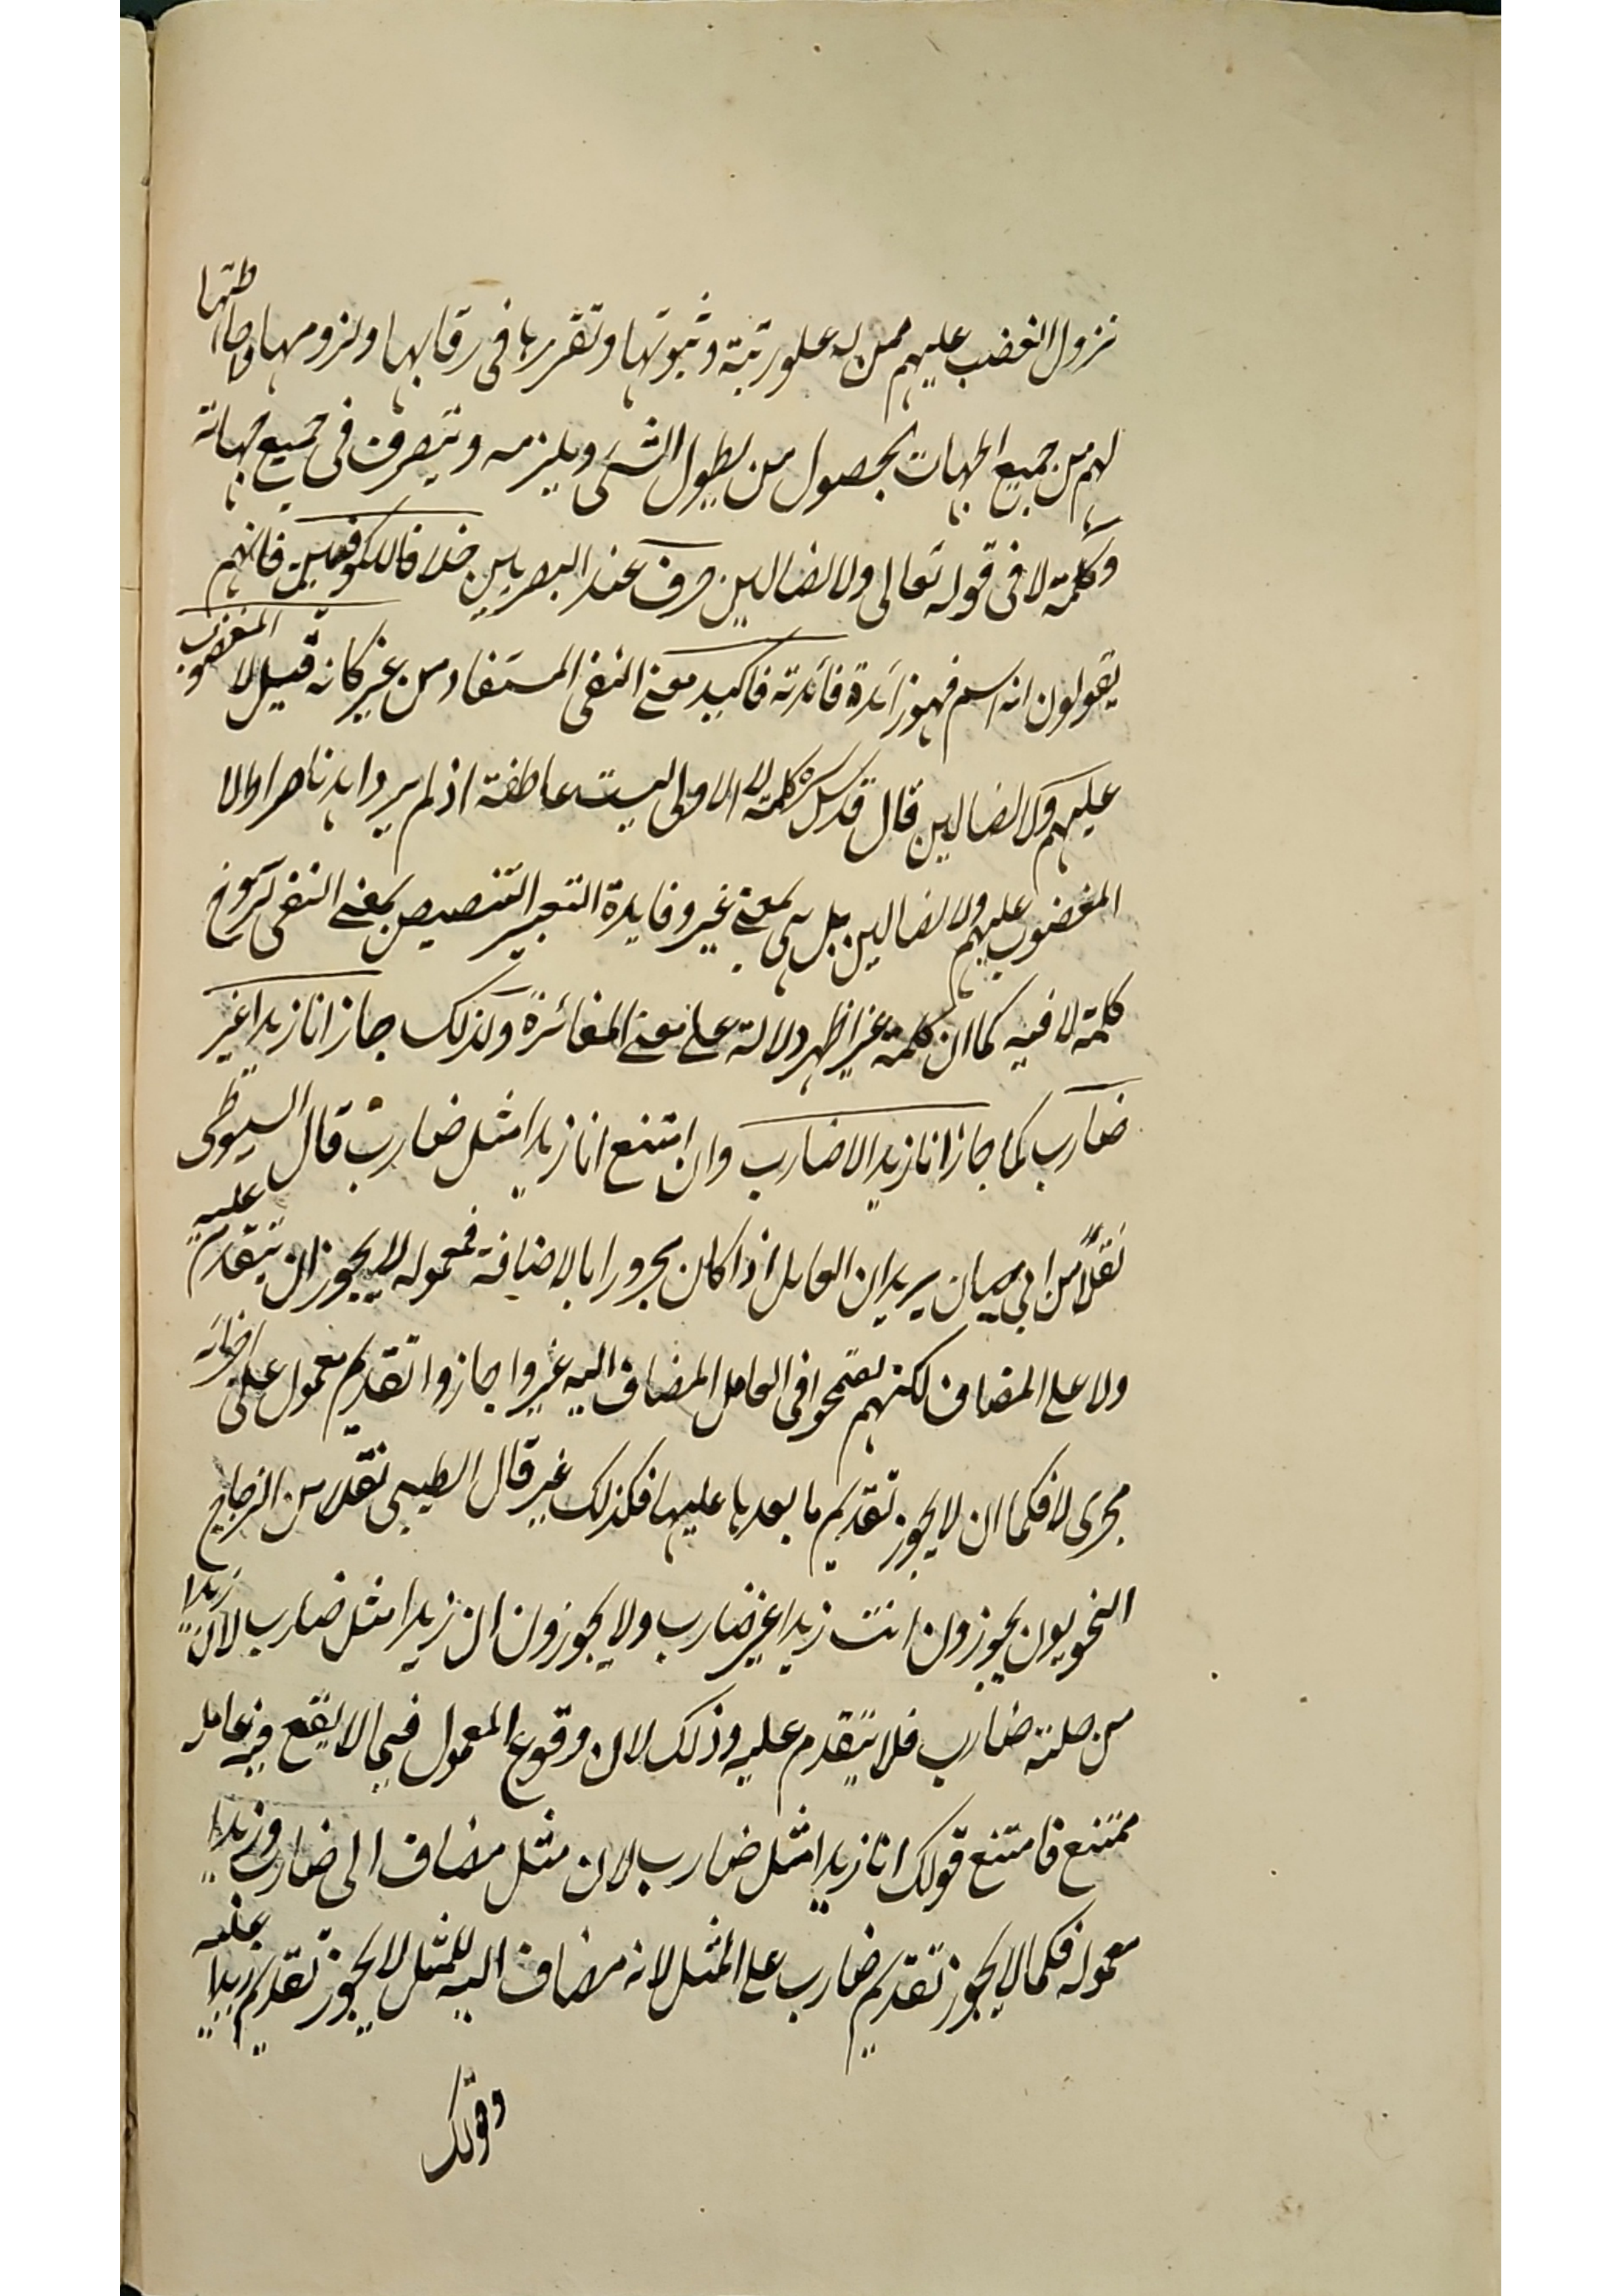 نزول الغضب عليهم ممن له علو رتبة وثبوتها وتقررها فى رقابها ولزومها واحاطتها
لهم من جميع الجهات بحصول من يطول الشئ ويلزمه ويتصرف فى جميع جهاته
وكلمة لا فى قوله تعالى ولا الضالين حرف عند البصريين خلافا للكوفيين فانهم
يقولون انه اسم فهو زائدة فائدته تاكيد معنى النفى المستفاد من غير كانه قيل لا المغضوب
عليهم ولا الضالين قال قدس سره كلمة لا الاولى ليست عاطفة اذ لم يرد اهدنا صراط لا
المغضوب عليهم ولا الضالين بل هى بمعنى غير وفايدة التعبير التنصيص بمعنى النفى لرسوخ
كلمة لا فيه كما ان كلمة غير اظهر دلالة على معنى المغائرة ولذلك جاز انا زيدا غير
ضارب كما جاز انا زيدا لا ضارب وان امتنع انا زيدا مثل ضارب قال السيوطى
نقلا من ابى حيان يريد ان العامل اذا كان مجرورا بالاضافة فمعموله لا يجوز ان يتقدم عليه
ولا على المضاف لكنهم تسمحوا فى العامل المضاف اليه غير واجازوا تقديم معمول على
مجرى لا فكما ان لا يجوز تقديم ما بعدها عليها فكذلك غير قال الطيبى نقلا من الزجاج
النحويون يجوزون انت زيدا غير ضارب ولا يجوزون ان زيدا مثل ضارب لان زيدا
من صلته ضارب فلا يتقدم عليه وذلك لان وقوع المعمول فيما لا يقع فيه عامله
ممتنع فامتنع قولك انا زيدا مثل ضارب لان مثل مضاف الى ضارب وزيدا
معموله فكما لا يجوز تقديم ضارب على المثل لانه مضاف اليه للمثل لا يجوز تقديم زيدا عليه
وقولك